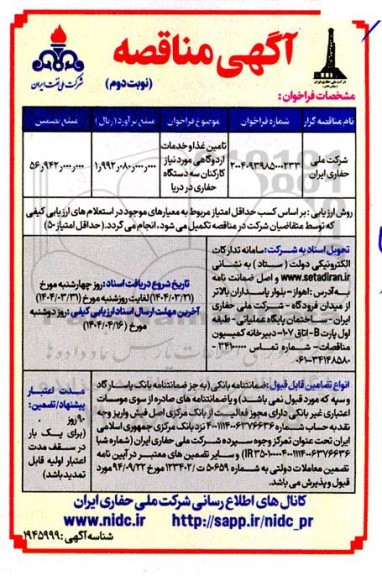 آگهی مناقصه
(نوبت دوم)
شرکت ملی نفت ایران
مشخصات فراخوان :
نام مناقصه گزار
شماره فراخوان
موضوع فراخوان
مبلغ برآورد (ریال)
مبلغ تضمین
شرکت ملی حفاری ایران
۲۰۰۴۰۹۳۹۸۵۰۰۰۲۳۳
تامین غذا و خدمات
اردوگاهی مورد نیاز
کارکنان سه دستگاه
حفاری در دریا
روش ارزیابی : بر اساس کسب حداقل امتیاز مربوط به معیارهای موجود در استعلام های ارزیابی کیفی
که توسط متقاضیان شرکت در مناقصه تکمیل می شود، انجام می گردد. (حداقل امتیاز ۵۰)
تحویل اسناد به شرکت : سامانه تدارکات
الکترونیکی دولت ( ستاد ) به نشانی
www.setadiran.ir و اصل ضمانت نامه
به آدرس : اهواز - بلوار پاسداران بالاتر
از میدان فرودگاه - شرکت ملی حفاری
ایران - ساختمان پایگاه عملیاتی - طبقه
اول پارت B - اتاق ۱۰۷ - دبیرخانه کمیسیون
مناقصات - شماره تماس :
۰۶۱-۳۴۱۴۸۵۸۰
تاریخ شروع دریافت اسناد : روز چهارشنبه مورخ
(۱۴۰۴/۰۳/۲۱) لغایت روز شنبه مورخ (۱۴۰۴/۰۳/۳۱)
آخرین مهلت ارسال اسناد ارزیابی کیفی : روز دوشنبه
مورخ (۱۴۰۴/۰۴/۱۶)
انواع تضامین قابل قبول : ضمانتنامه بانکی (به جز ضمانتنامه بانک پاسارگاد
و سپه که مورد قبول نمی باشد) و یا ضمانتنامه های صادره از سوی موسسات
اعتباری غیر بانکی دارای مجوز فعالیت از بانک مرکزی اصل فیش واریز وجه
نقد به حساب شماره ۴۰۰۱۱۱۴۰۰۶۳۷۶۶۳۶ نزد بانک مرکزی جمهوری اسلامی
ایران تحت عنوان تمرکز وجوه سپرده شرکت ملی حفاری ایران (شماره شبا
و سایر تضمین های معتبر در آیین نامه
تضمین معاملات دولتی به شماره ۵۰۶۵۹ ت/۱۲۳۴۰۲ مورخ ۹۴/۰۹/۲۲ مورد
قبول و پذیرش می باشد.
مدت اعتبار
پیشنهاد / تضمین :
۹۰ روز
(برای یک بار
در سقف مدت
اعتبار اولیه قابل
تمدید باشد)
کانال های اطلاع رسانی شرکت ملی حفاری ایران
www.nidc.ir http://sapp.ir/nidc_pr
شناسه آگهی : ۱۹۴۵۹۹۹